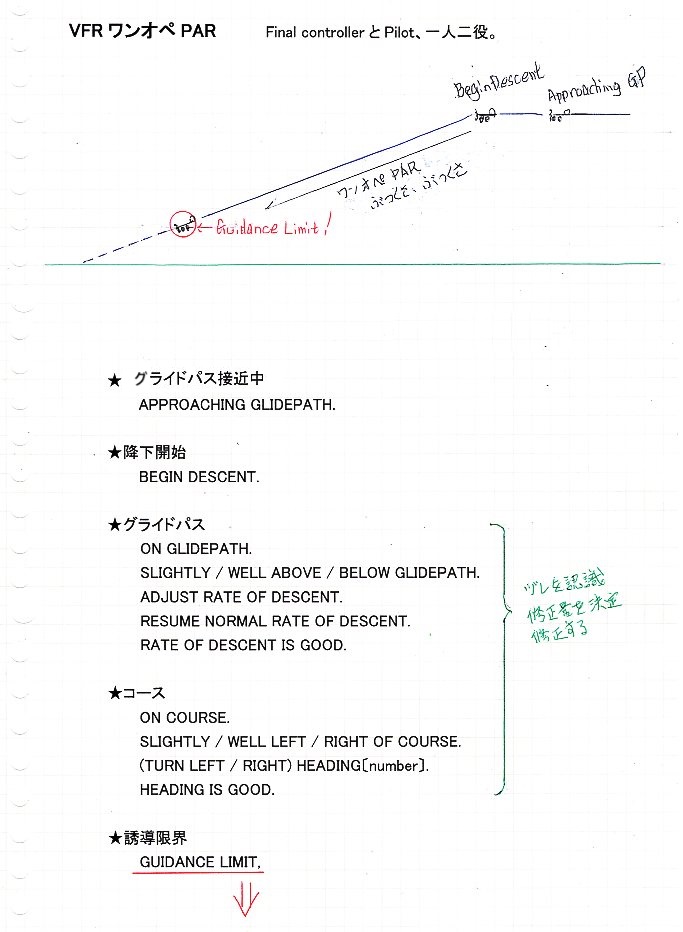 VFR ワンオペ PAR
Final controllerとPilot、一人二役。
Begin Descent
Approaching GP
ワンオペ PAR
ぶつくさ、ぶつくさ
←Guidance Limit!
★ グライドパス接近中
APPROACHING GLIDEPATH.
★降下開始
BEGIN DESCENT.
★グライドパス
ON GLIDEPATH.
SLIGHTLY / WELL ABOVE / BELOW GLIDEPATH.
ADJUST RATE OF DESCENT.
RESUME NORMAL RATE OF DESCENT.
RATE OF DESCENT IS GOOD.
ヅレを認識
修正量を決定
修正する
★コース
ON COURSE.
SLIGHTLY / WELL LEFT / RIGHT OF COURSE.
(TURN LEFT / RIGHT) HEADING〔number〕.
HEADING IS GOOD.
★誘導限界
GUIDANCE LIMIT,